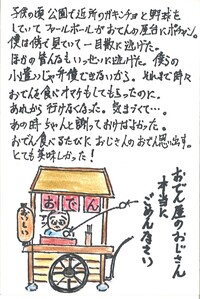 子供の頃 公園で近所のガキンチョと野球を
していて ファールボールがおでんの屋台にボッカーン。
僕は怖て見ていて一目散に逃げた。
ほかの皆んなもいっせいに逃げた。僕らの
小遣いじゃ弁償できないから。それまで時々
おでんを食べにオマケもしてもらってたのに
あれから 行けなくなった。気まづくて…。
あの時ちゃんと謝っておけばよかった。
おでん食べるたびに おじさんのおでん思い出す。
とても美味しかった!
おでん屋のおじさん
本当に
ごめんなさい
おでん
おいしい